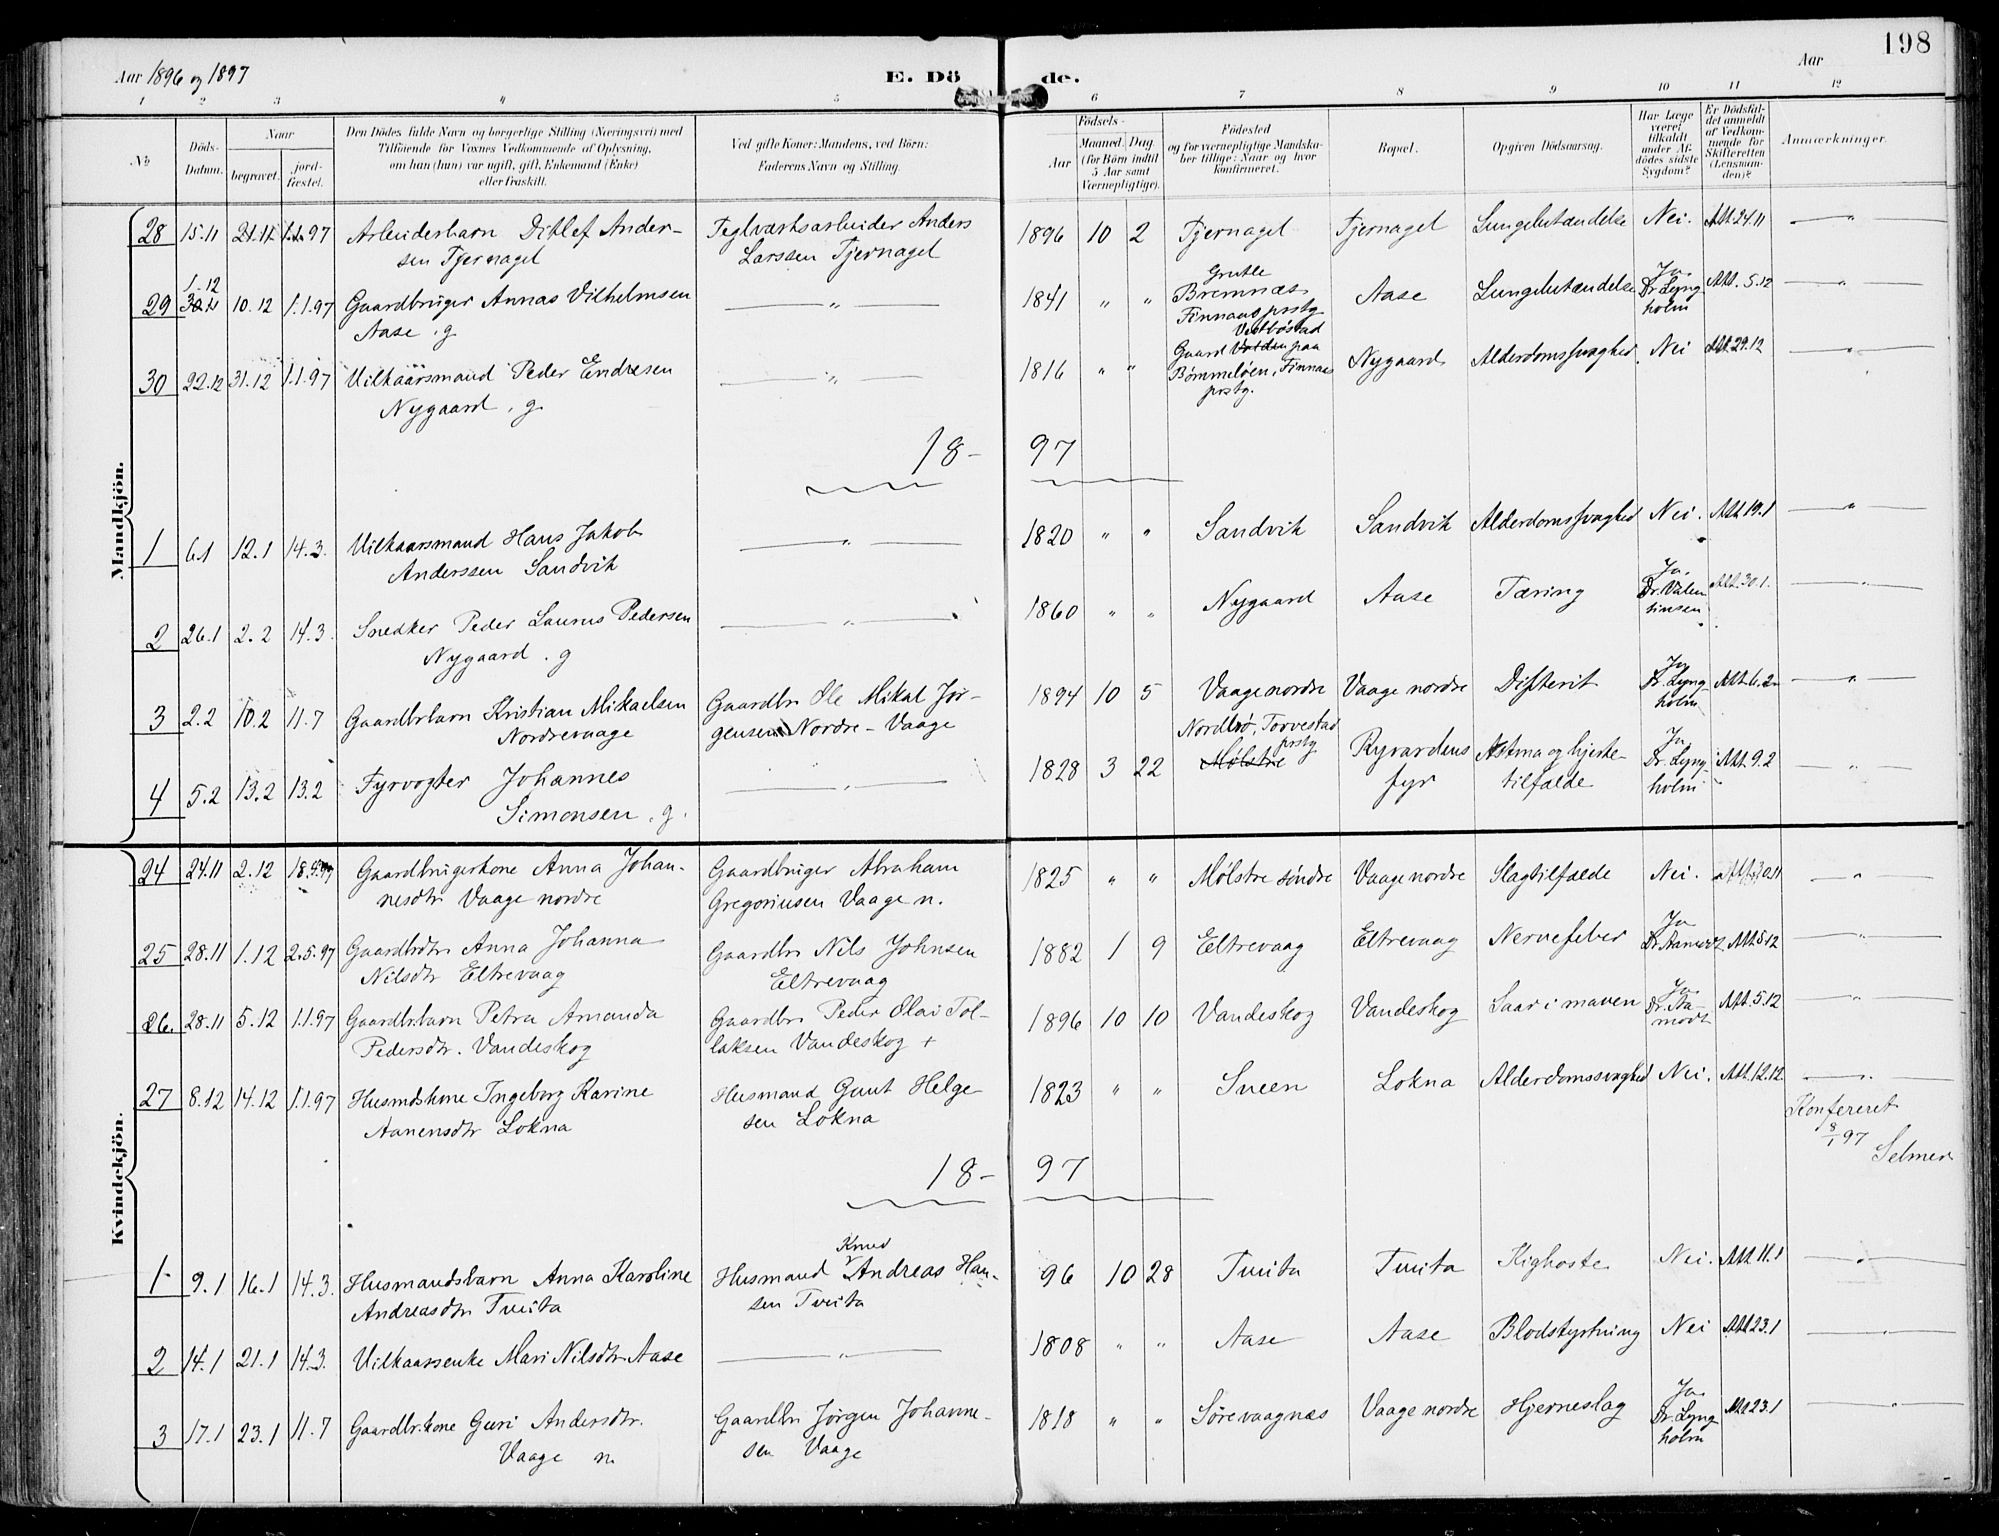 198
Aar 1896 og 1897
E. Dö de.
Aar
1 2 3 4 5 6 7 8 9 10 11 12
No
Döds-Datum.
Naar
begravet.
jord-fæstet.
Den Dödes fulde Navn og borgerlige Stilling (Næringsvei) med
Tilföiende for Voxnes Vedkommende af Oplysning,
om han (hun) var ugift, gift, Enkemand (Enke)
eller fraskilt.
Ved gifte Koner: Mandens, ved Börn:
Faderens Navn og Stilling.
Födsels-
Aar
Maaned. Dag
(for Börn indtil
5 Aar samt
Værnepligtige).
Födested
og for værnepligtige Mandska-
ber tillige: Naar og hvor
konfirmeret.
Bopæl.
Opgiven Dödsaarsag.
Har Læge
været
tilkaldt
under Af-
dödes sidste
Sygdom?
Er Dödsfal-
det anmeldt
af Vedkom-
mende for
Skifteretten
(Lensman-
den)?
Anmærkninger.
Mandkjön.
28 15.11 21.11 1.1.97 Arbeiderbarn Ditlef Ander- Teglværksarbeider Anders 1896 10 2 Tjernagel Tjernagel Lungebetændelse Nei. Att. 24.11 "
sen Tjernagel Larssen Tjernagel
1.12 Grutle Ja.
29 30.11 10.12 1.1.97 Gaardbruger Annas Vilhelmsen " 1841 " " Bremnæs Aase Lungebetændelse Dr. Lyng- Att. 5.12 "
Aase . g Finnaas prstg holm
Vestbøstad
30 22.12 31.12 1.1.97 Vilkaarsmand Peder Endresen " 1816 " " Gaard Valden paa Nygaard Alderdomssvaghed Nei Att. 29.12 "
Nygaard . g. Bømmeløen, Finnaas
prstg.
18- 97
1 6.1 12.1 14.3. Vilkaarsmand Hans Jakob " 1820 " " Sandvik Sandvik Alderdomssvaghed Nei. Att 19.1 "
Anderssen Sandvik
Ja.
2 26.1 2.2 14.3. Snedker Peder Laurus Pedersen " 1860 " " Nygaard Aase Tæring Dr. Valen- Att. 30.1. "
Nygaard . g tinsen
Ja
3 2.2 10.2 11.7 Gaardbrbarn Kristian Mikaelsen Gaardbr. Ole Mikal Jør- 1894 10 5 Vaage nordre Vaage nordre Difterit Dr. Lyng- Att. 6.2 "
Nordrevaage gensen Nordre-Vaage holm
Nordbø, Torvestad
prstg Ja
4 5.2 13.2 13.2 Fyrvogter Johannes " 1828 3 22 Mølstre Ryvardens Astma og hjerte- Dr. Lyng- Att. 9.2 "
Simonsen . g. fyr tilfælde holm
Kvindekjön.
24 24.11 2.12 Gaardbrugerkone Anna Johan- Gaardbruger Abraham 1825 " " Mølstre søndre Vaage nordre Slagtilfælde Nei. Att 30.11 "
nesdtr Vaage nordre Gregoriusen Vaage n.
Ja
25 28.11 1.12 2.5.97 Gaardbrdtr Anna Johanna Gaardbr Nils Johnsen 1882 1 9 Eltrevaag Eltrevaag Nervefeber Dr. Aamodt. Att. 5.12 "
Nilsdtr Eltrevaag Eltrevaag
Ja
26. 28.11 5.12 1.1.97 Gaardbr.barn Petra Amanda Gaardbr Peder Olai Tol- 1896 10 10 Vandeskog Vandeskog Saar i maven Dr. Aa- Att. 5.12 "
Pedersdtr. Vandeskog laksen Vandeskog + modt
27 8.12 14.12 1.1.97 Husmdskone Ingeborg Karine Husmand Gaut Helge- 1823 " " Sneen Lokna Alderdomssvaghed Nei. Att. 12.12. "
Aanensdtr Lokna sen Lokna
Konfereret
8/1 97
Selmer
18- 97
Knud
1 9.1 16.1 14.3. Husmandsbarn Anna Karoline Husmand Andreas Han- 96 10 28 Tveita Tveita Kighoste Nei. Att. 11.1 "
Andreasdtr Tveita sen Tveita
2 14.1 21.1 14.3. Vilkaarsenke Mari Nilsdtr Aase " 1808 " " Aase Aase Blodstyrtning Nei Att 23.1 "
Ja
3 17.1 23.1 11.7 Gaardbr.kone Guri Andersdtr. Gaardbr Jørgen Johanne- 1818 " " Sørevaagnæs Vaage nordre Hjerneslag Dr. Lyng- Att 23.1 "
Vaage n. sen Vaage holm